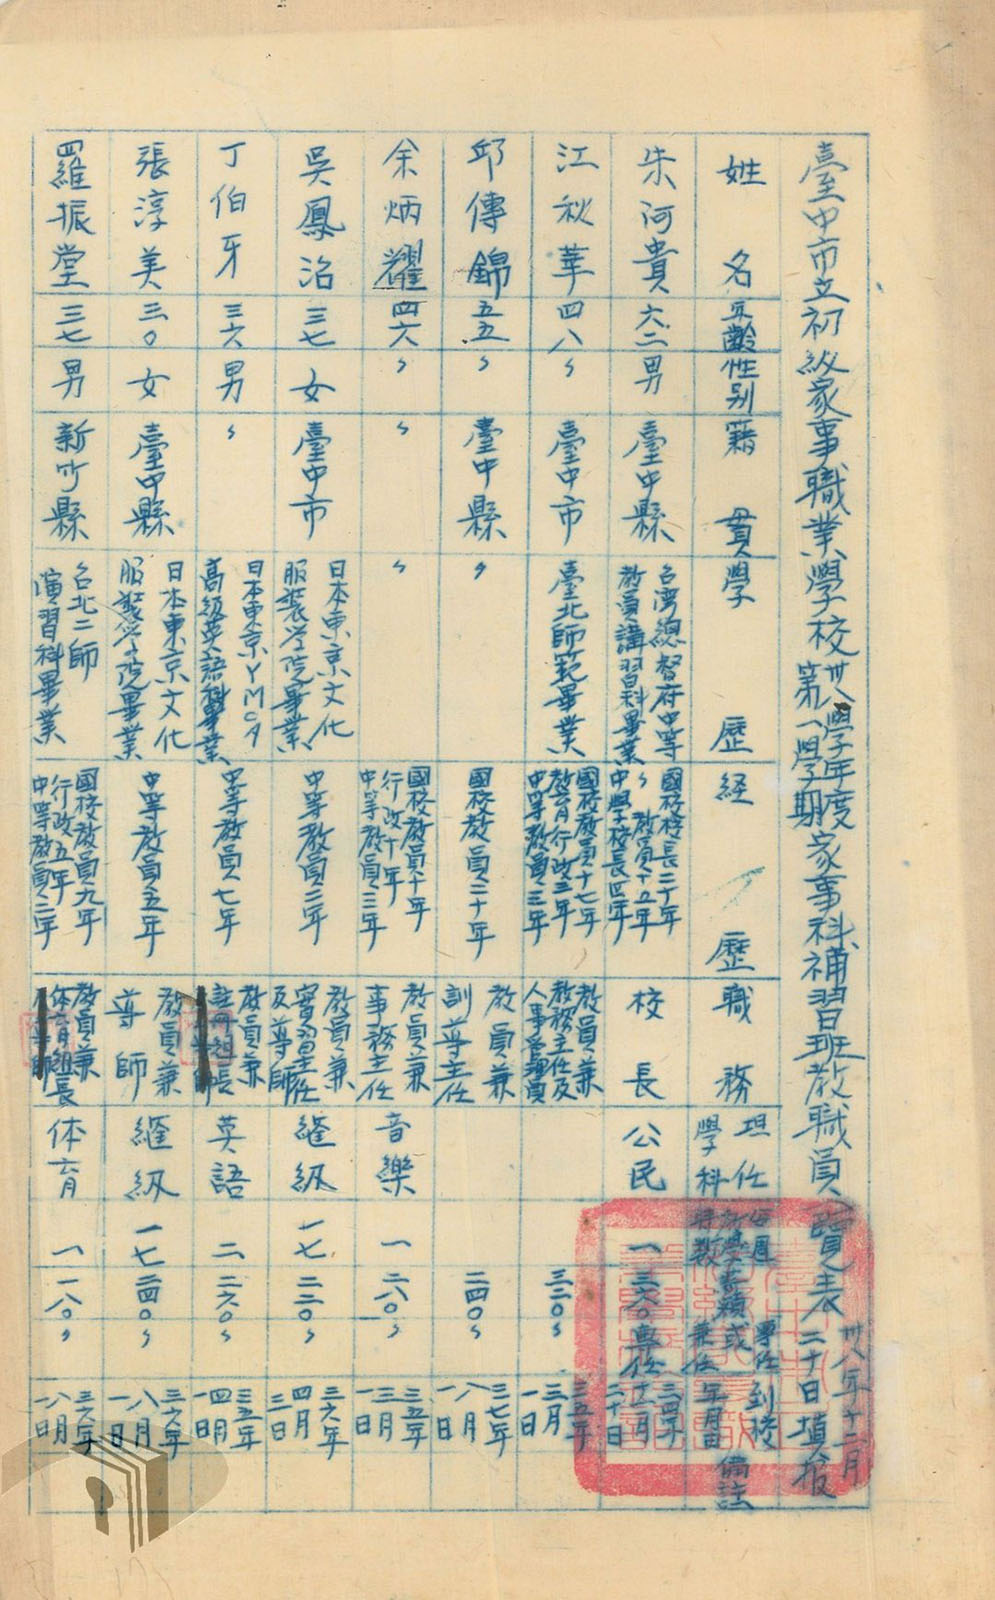 臺中市立初級家事職業學校
卅八學年度
第一學期
家事科補習班教職員一覽表
卅八年十二月
二十日填報
姓名
年齡
性別
籍貫
學歷
經歷
職務
担任
學科
每週
時數
薪額
專任
或
兼任
到校
年月日
備註
朱阿貴
六二
男
臺中縣
台灣總督府中等
教員講習科畢業
國校校長二十年
〻 教員十五年
中學校長四年
校長
公民
一
三六〇
專任
三四年
十二月
二十日
江秋華
四八
〻
臺中市
臺北師範畢業
國校教員十七年
教育行政三年
中等教員三年
教員兼
教務主任及
人事管理員
三二〇
〻
三五年
三月
一日
邱傳錦
五五
〻
臺中縣
〻
國校教員二十年
教員兼
訓導主任
二四〇
〻
三七年
八月
一日
余炳耀
四六
〻
〻
〻
國校教員十年
行政十年
中等教員三年
教員兼
事務主任
音樂
一
二八〇
〻
三五年
三月
一日
吳鳳治
三七
女
臺中市
日本東京文化
服裝学院畢業
中等教員三年
教員兼
實習主任
及導師
縫級
一七
二二〇
〻
三六年
四月
三日
丁伯牙
三六
男
〻
日本東京YMCA
高級英語科畢業
中等教員七年
教員兼
註冊組長
英語
二
二六〇
〻
三五年
四月
一日
張淳美
三〇
女
臺中縣
日本東京文化
服裝学院畢業
中等教員五年
教員兼
導師
縫級
一七
二四〇
〻
三六年
八月
一日
羅振堂
三七
男
新竹縣
台北二師
演習科畢業
國校教員九年
行政五年
中等教員二年
教員兼
体育組長
体育
一
一八〇
〻
三六年
八月
一日